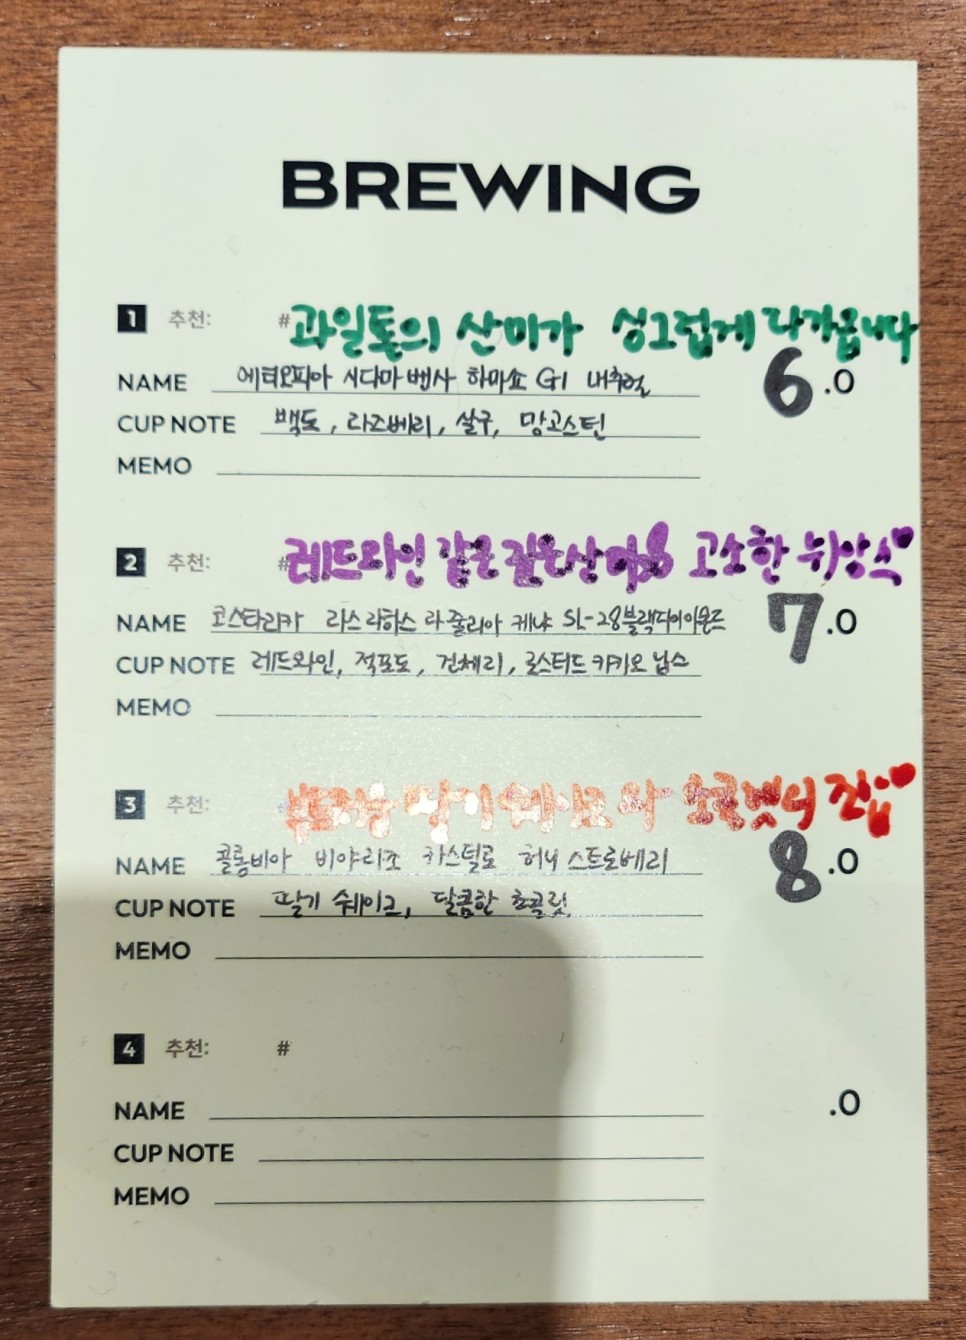 BREWING
1 추천: #과일톤의 산미가 싱그럽게 다가옵니다
NAME 에티오피아 시다마 벰사 하마쇼 G1 내추럴 6.0
CUP NOTE 백도, 라즈베리, 살구, 망고스틴
MEMO
2 추천: #레드와인 같은 깊은 산미와 고소한 뒤
NAME 코스타리카 라스 라하스 라 줄리아 케냐 SL-28 블랙다이아몬드 7.0
CUP NOTE 레드와인, 적포도, 건체리, 로스티드 카카오 닙스
MEMO
3 추천: 부드러운 딸기쉐이크와 초콜렛의 조합
NAME 콜롬비아 비야리조 카스틸로 허니 스트로베리 8.0
CUP NOTE 딸기 쉐이크, 달콤한 초콜릿
MEMO
4 추천: #
NAME .0
CUP NOTE
MEMO